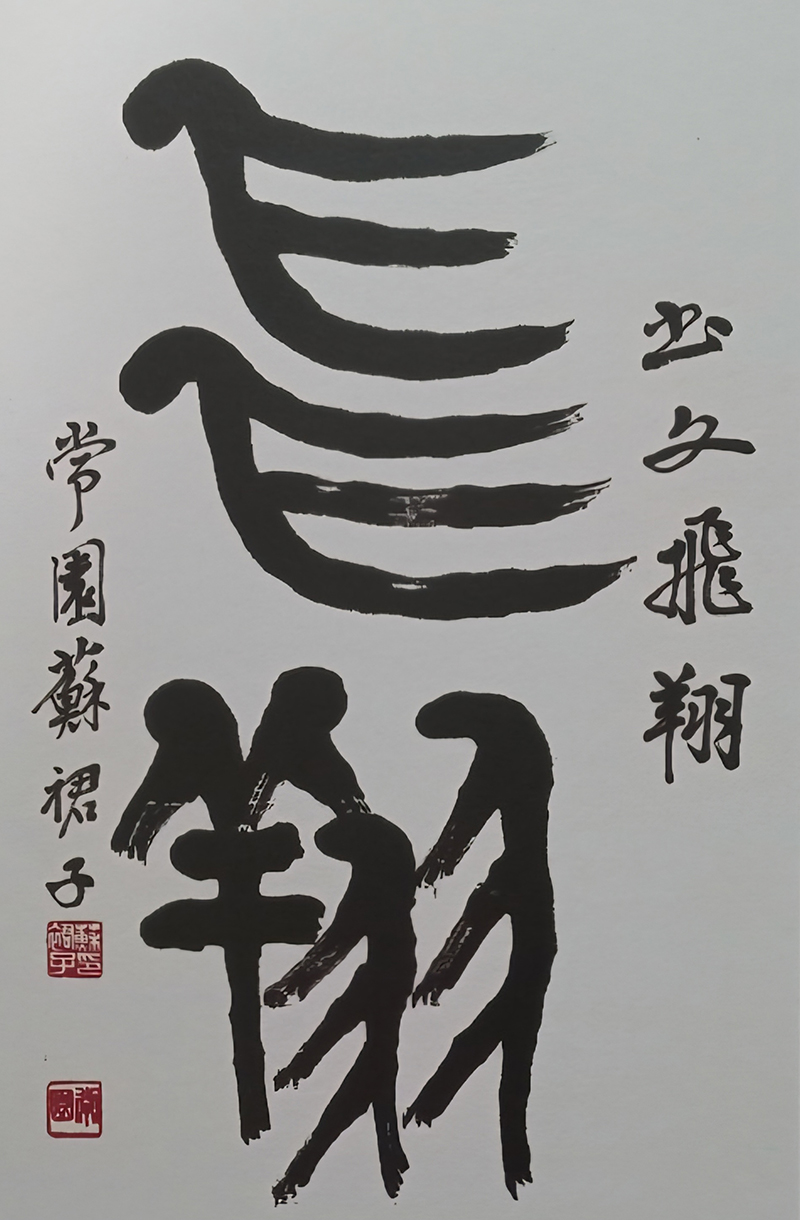 文飛翔
飛翔
常園蘇裙子
蘇印裙子
常園